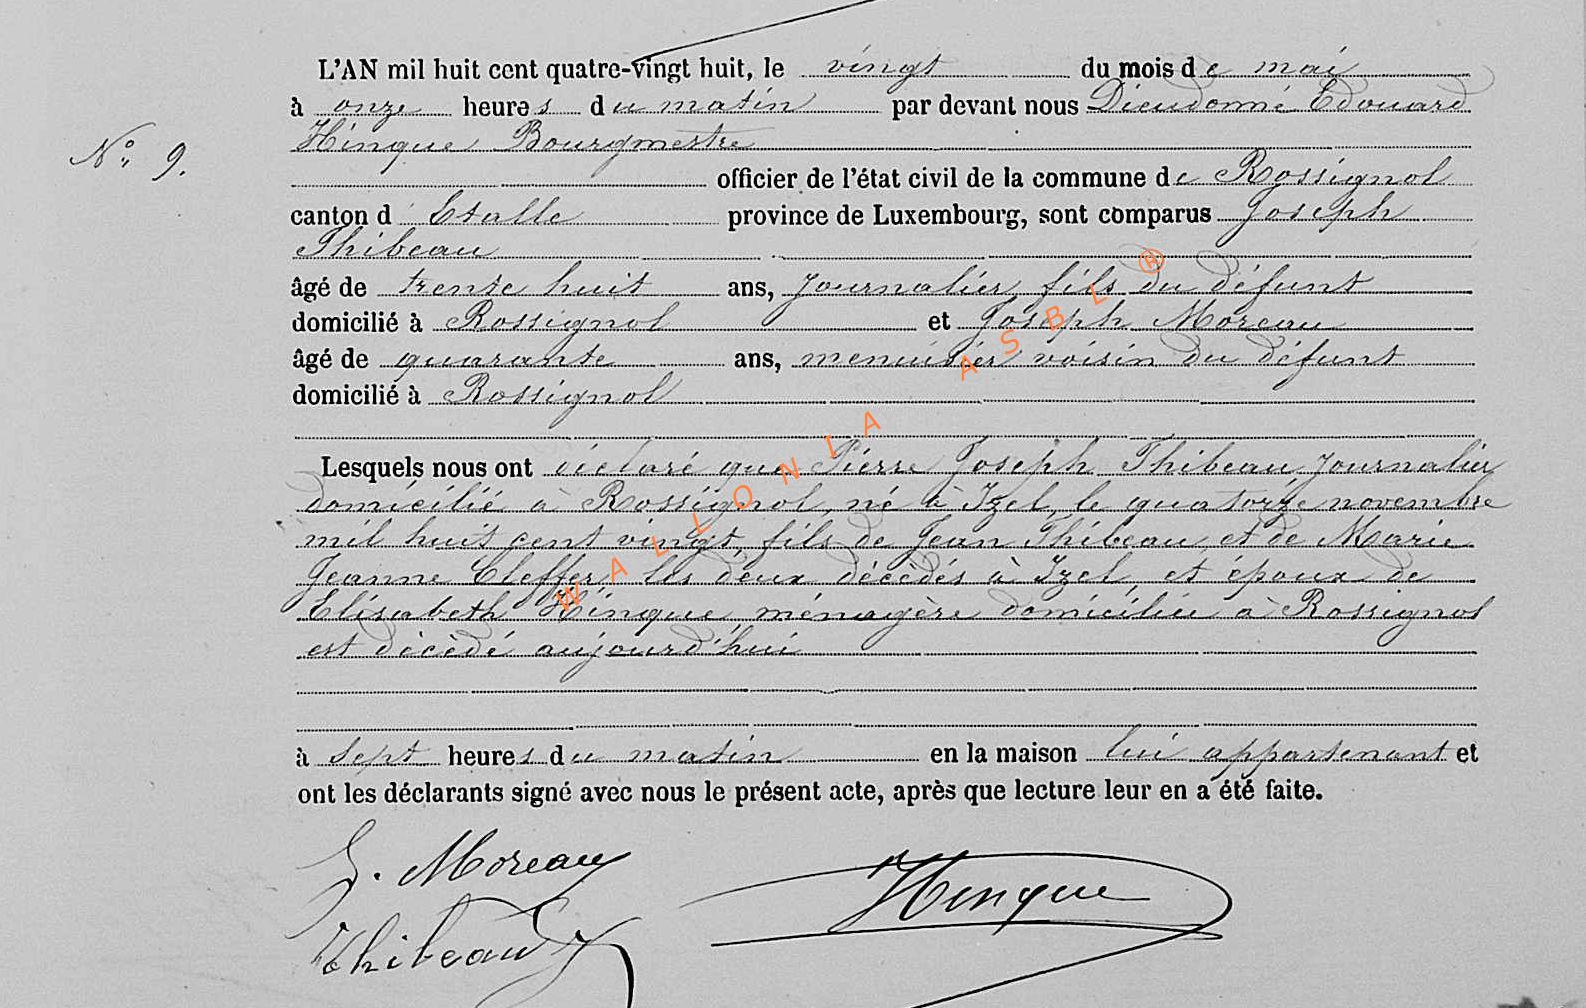 L'AN mil huit cent quatre-vingt huit, le vingt du mois de mai
à onze heures du matin par devant nous Dieudonné Edouard
Hinque Bourgmestre
N° 9.
officier de l'état civil de la commune de Rossignol
canton d'Etalle province de Luxembourg, sont comparus Joseph
Thibeau
âgé de trente huit ans, journalier, fils du défunt
domicilié à Rossignol et Joseph Moreau
âgé de quarante ans, menuisier voisin du défunt
domicilié à Rossignol
Lesquels nous ont déclaré que Pierre Joseph Thibeau journalier
domicilié à Rossignol, né à Izel, le quatorze novembre
mil huit cent vingt, fils de Jean Thibeau et de Marie
Jeanne Cleffer les deux décédés à Izel, et époux de
Elisabeth Hinque, ménagère domiciliée à Rossignol
est décédé aujourd'hui
à sept heures du matin en la maison lui appartenant et
ont les déclarants signé avec nous le présent acte, après que lecture leur en a été faite.
J. Moreau
Hinque
Thibeau J
WALLONIA ASBL ®